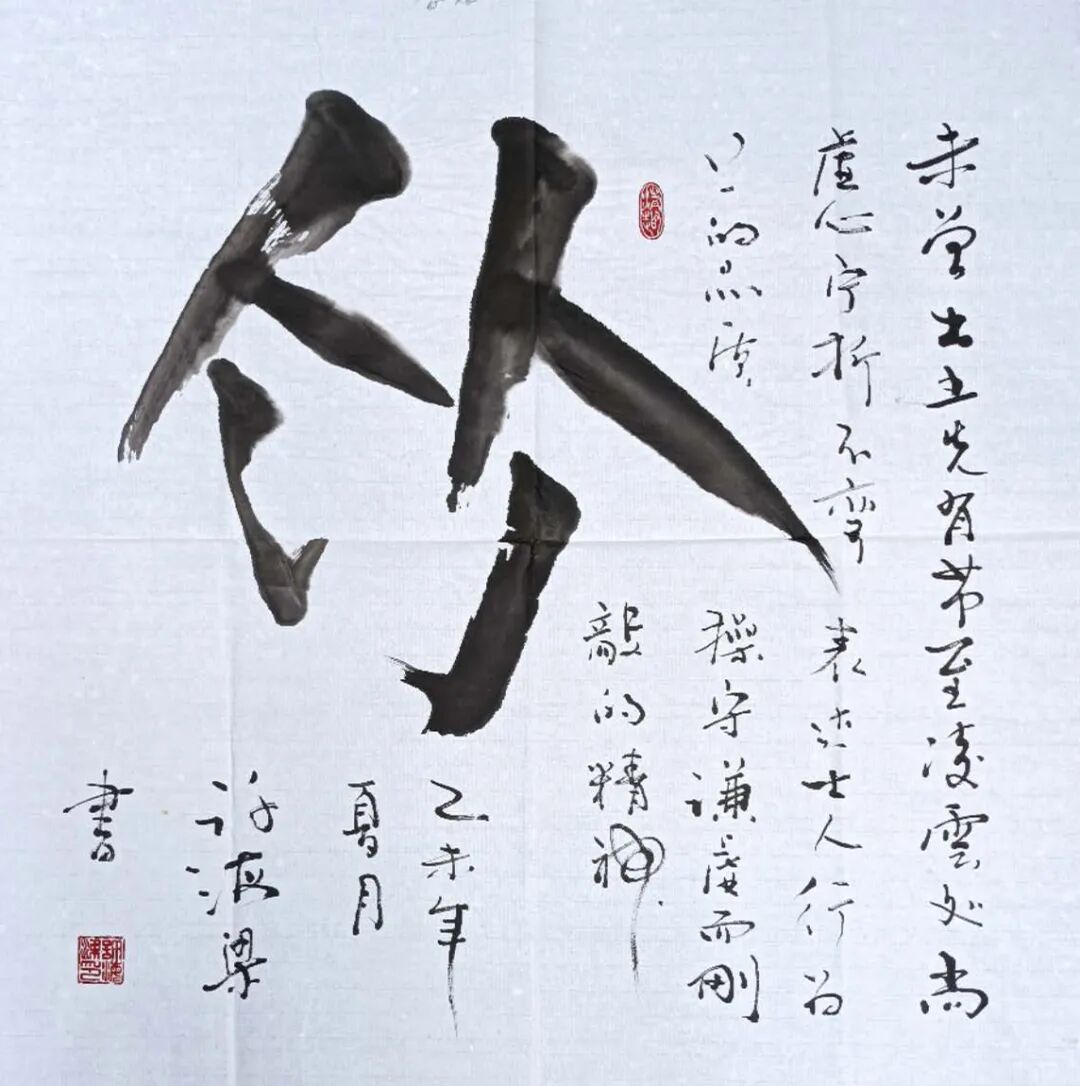 竹
未曾出土先有节至凌雲处尚
虚心宁折不弯表达士人行为
上的
操守谦虚而刚
毅的精神
乙未年
夏月
许海梁
書